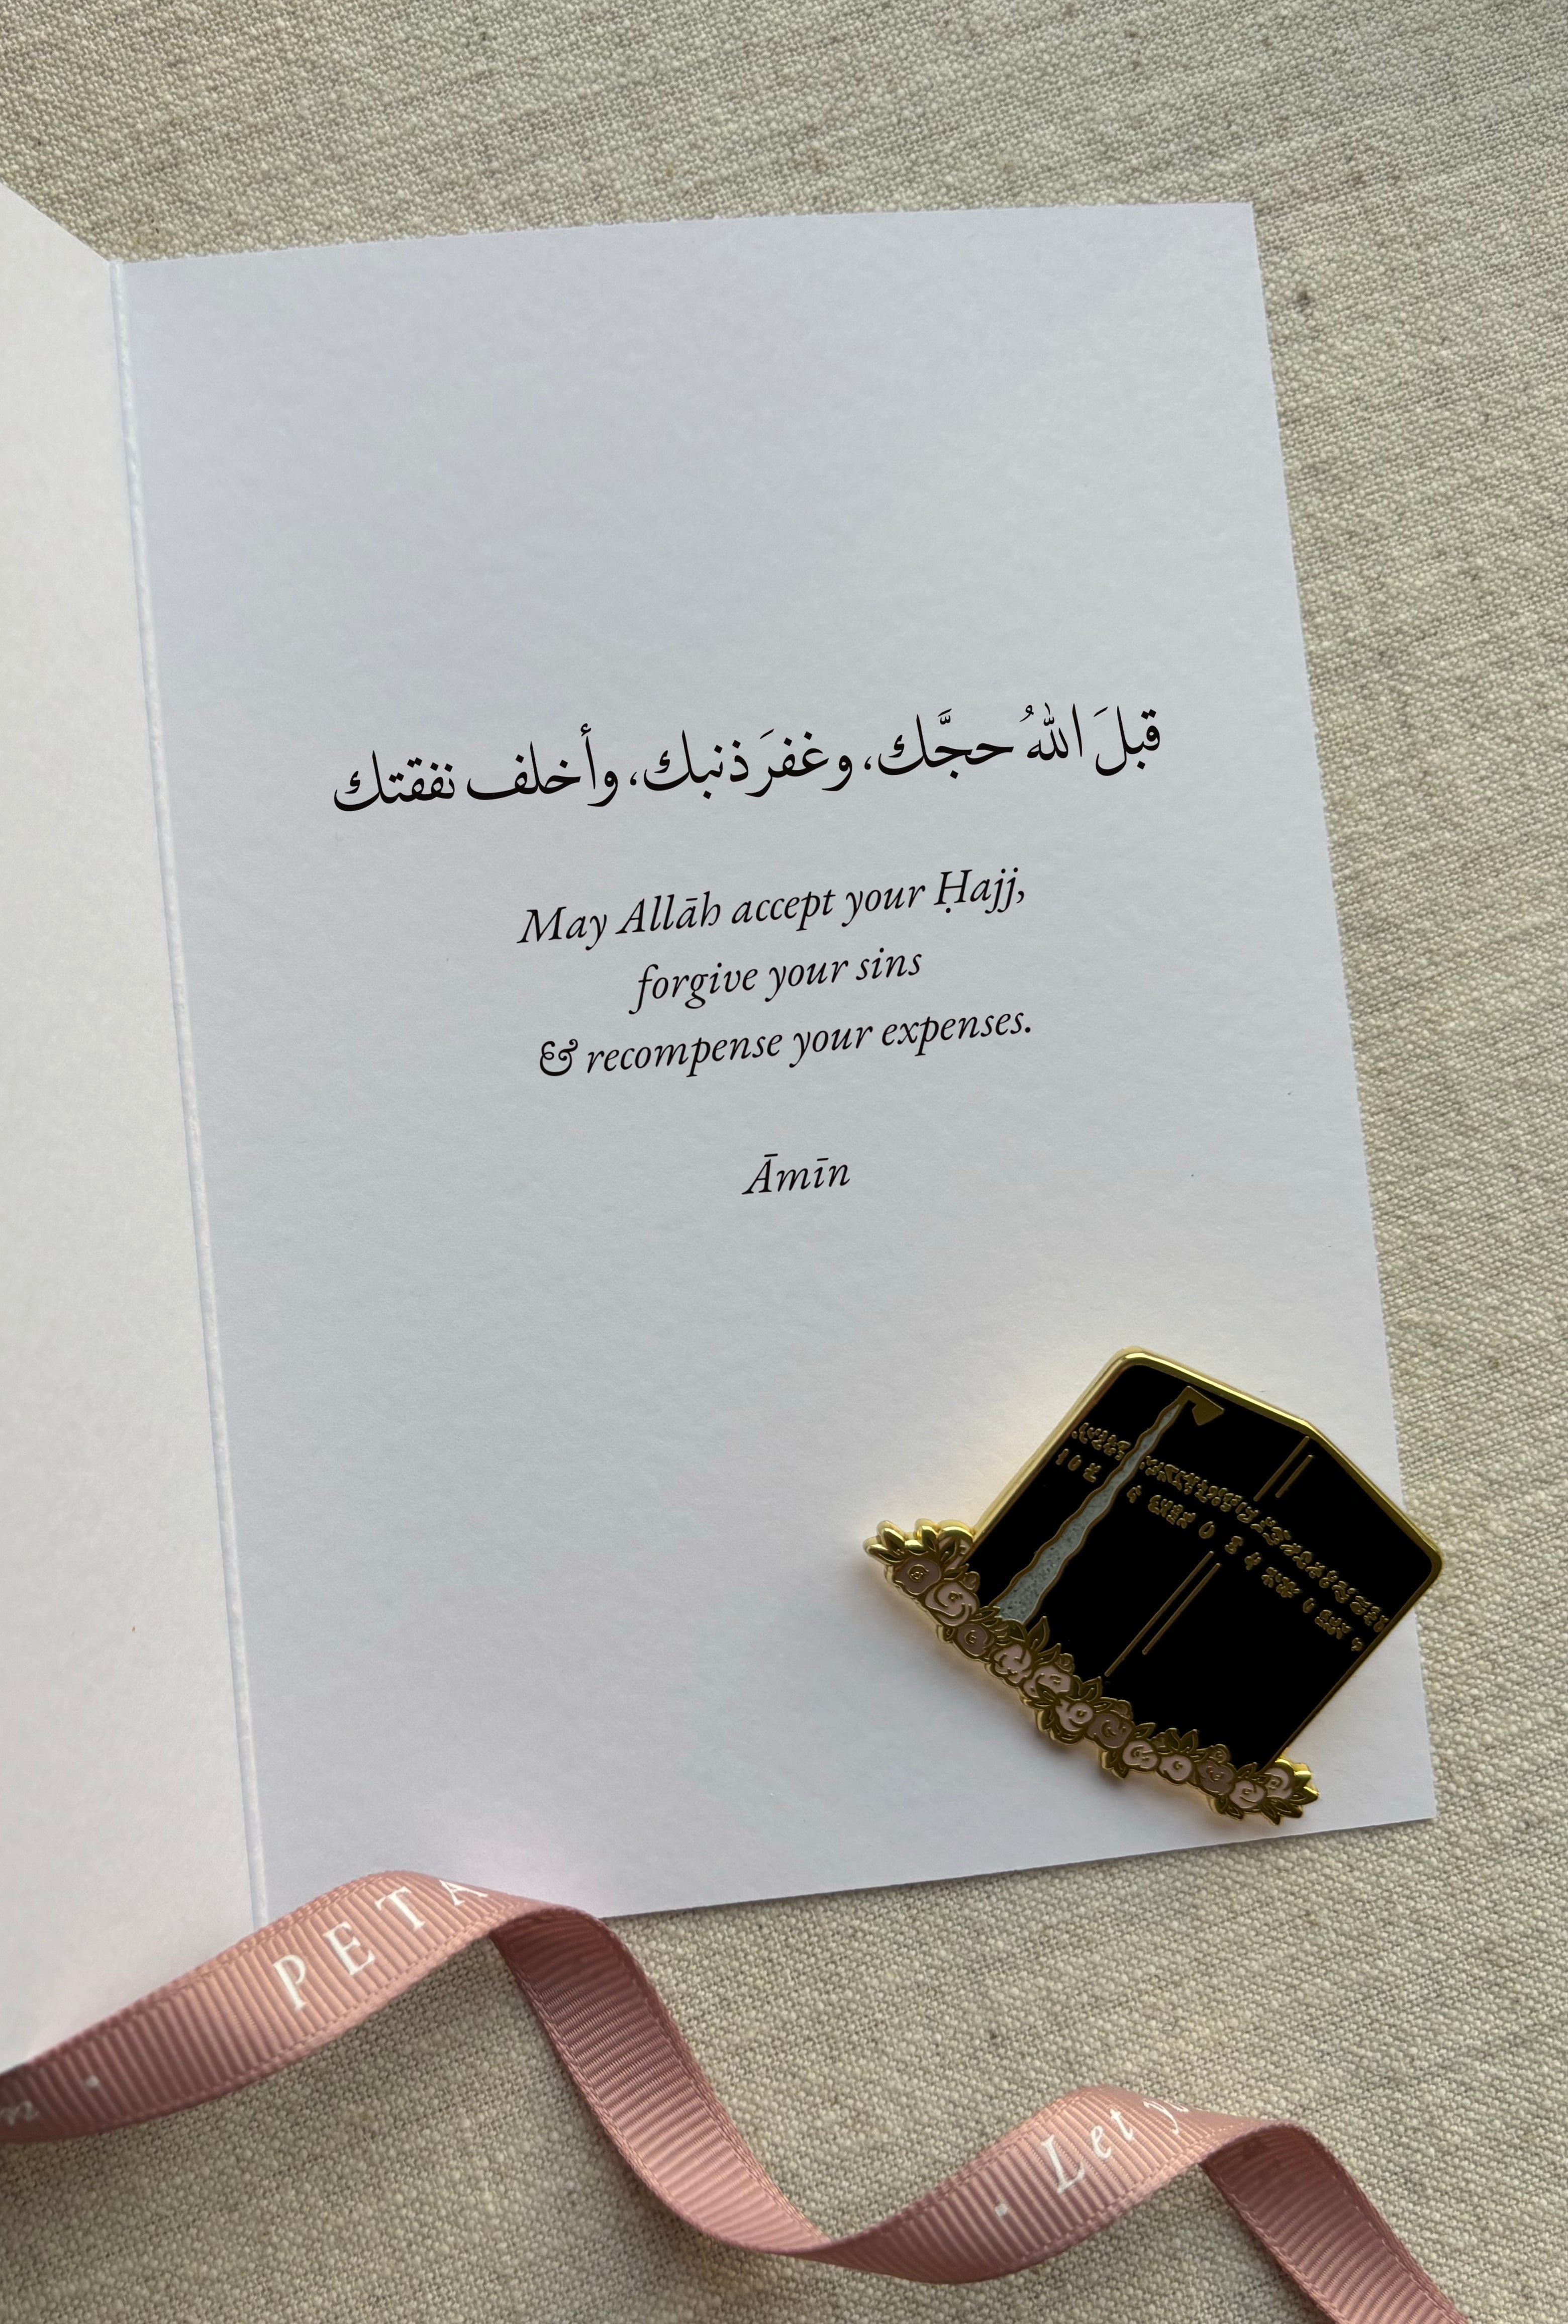 قبلَ اللهُ حجَّك، وغفرَ ذنبك، وأخلف نفقتك
May Allāh accept your Ḥajj,
forgive your sins
& recompense your expenses.
Āmīn
PETA
· Let